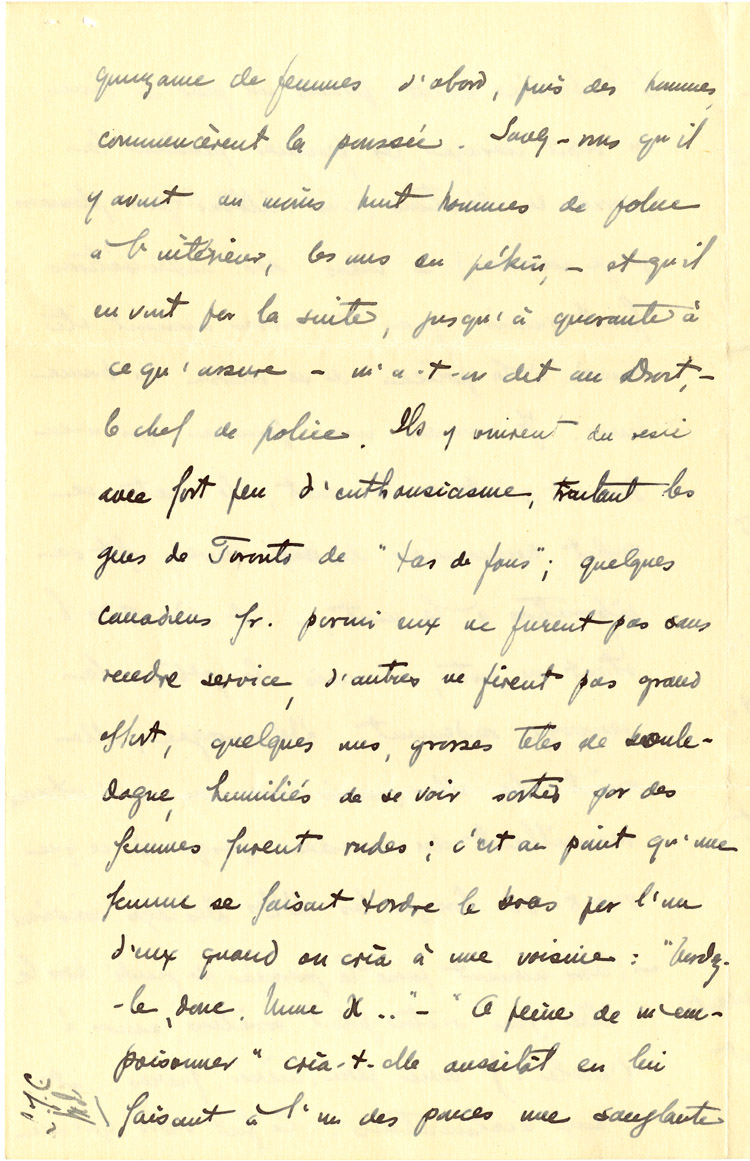 quinzaine de femmes d'abord, puis des hommes,
commencèrent la poussée. Savez-vous qu'il
y avait au moins huit hommes de police
à l'intérieur, les uns en pékin, - et qu'il
en vint par la suite, jusqu'à quarante à
ce qu'assure - m'a-t-on dit au Droit, -
le chef de police. Ils y vinrent du reste
avec fort peu d'enthousiasme, traitant les
gens de Toronto de "tas de fous"; quelques
canadiens fr. parmi eux ne furent pas sans
rendre service, d'autres ne firent pas grand
effort, quelques uns, grosses têtes de boule-
dogue, humiliés de se voir sortis par des
femmes furent rudes; c'est au point qu'une
femme se faisait tordre le bras par l'un
d'eux quand on cria à une voisine: "Mordez-
-le, donc, Mme X.." - "A peine de m'em-
poisonner" cria-t-elle aussitôt en lui
faisant à l'un des pouces une sanglante